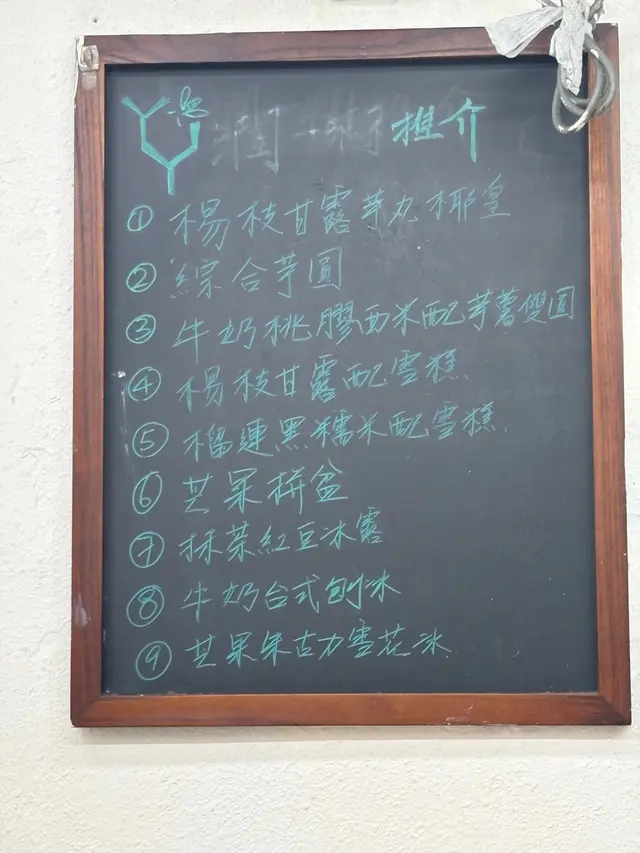 推介
① 楊枝甘露芋丸椰皇
② 綜合芋圓
③ 牛奶桃膠西米配芋薯雙圓
④ 楊枝甘露配雪糕
⑤ 榴連黑糯米配雪糕
⑥ 芒果拼盆
⑦ 抹茶紅豆冰露
⑧ 牛奶台式刨冰
⑨ 芒果朱古力雪花冰